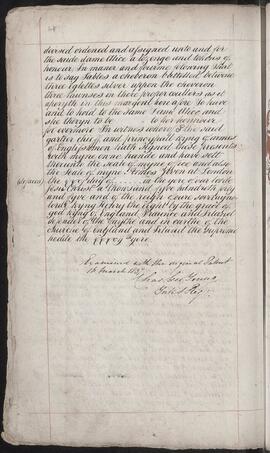 devised ordened and assigned unto and for
the saide dame Alice a lozenge and tokens of
honour In maner and fourme folowing that
is to say Sables a cheveron battelled betwene
three Egletts silver uppon the cheveron
three in there proper coullers as it
aperyth in this margent here afore To have
and to hold to the same Dame Alice and
she theryn to be to her honnour
for evermore In witness wherof I the said
Gartier chief and principall kyng of armes
of Englisshmen hath signed these presents
with myne owne hande and have sett
therunto the seale of myne office and also
the Seale of myne Armes Given at London
the day of in the yere of our lorde
Jesu Christ a thousand fyve hundreth forty
and fyve and of the reign of our soveraigne
lorde Kyng Henry the eight by the grace of
god kyng of England Fraunce and Ireland
defender of the faythe and in earthe of the
Churche of England and Ireland the supreme
hedde the yere
Examined with the original Patent
March 1837
Chas Geo Young
York &